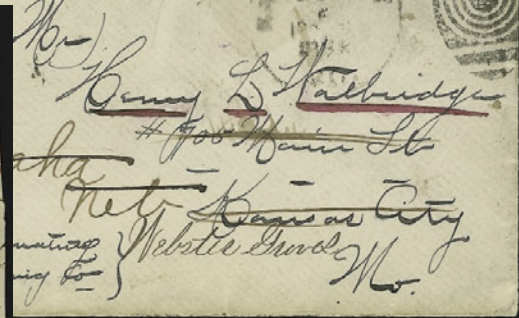 Mr
Henry L Walbridge
#700 Main St
aha
Neb Kansas City
Webster Groves
Mo.